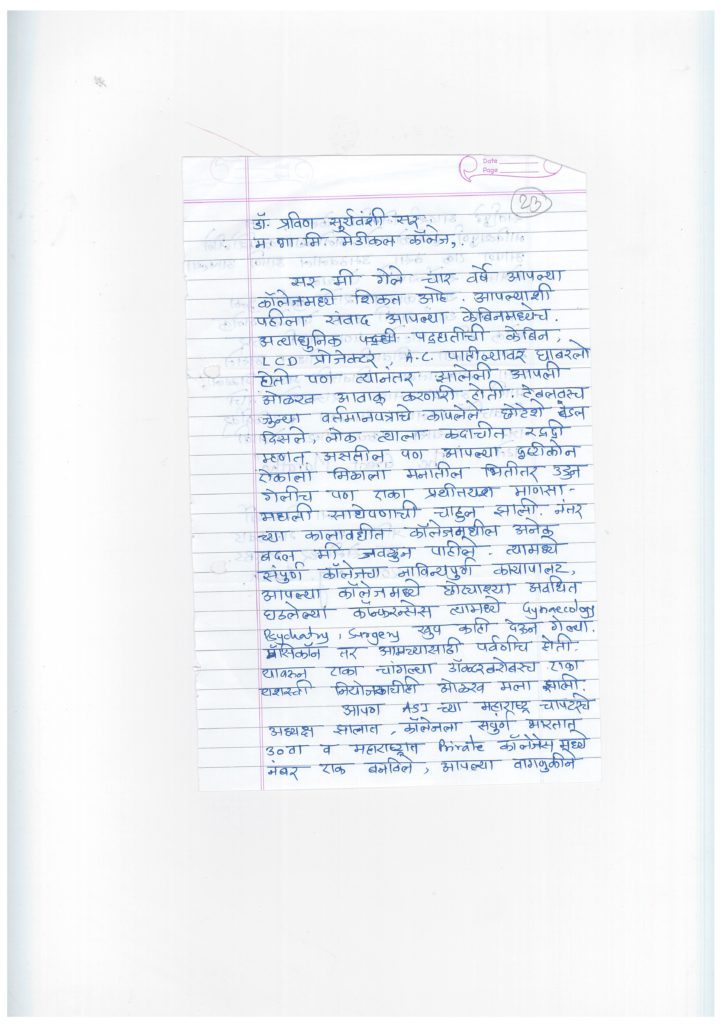 Date
Page
23
डॉ. प्रविण सुर्यवंशी सर,
म. गा. मि. मेडीकल कॉलेज,
सर मी गेले चार वर्षे आपल्या
कॉलेजमध्ये शिकत आहे. आपल्याशी
पहीला संवाद आपल्या केबिनमध्येच.
अत्याधुनिक पद्धतीची केबिन,
LCD प्रोजेक्टर, A.C. पाहील्यावर घाबरलो
होतो पण त्यानंतर झालेली आपली
ओळख आवाक करणारी होती. टेबलवरच
जुन्या वर्तमानपत्राचे कापलेले छोटेशे बंडल
दिसले, लोक त्याला कदाचीत रद्दी
म्हणत असतील पण आपल्या दृष्टीकोन
ऐकाला मिळाला मनातील भितीतर उडुन
गेलीच पण एका प्रथीतयश माणसा-
मधली साधेपणाची चाहुल झाली. नंतर
च्या कालावधीत कॉलेजमधील अनेक
बदल मी जवळुन पाहीले. त्यामध्ये
संपुर्ण कॉलेजचा नाविन्यपुर्ण कायापालट,
आपल्या कॉलेजमध्ये छोट्याश्या अवधित
घडलेल्या कॉन्फरन्सेस त्यामध्ये Gynaecology
Psychiatry, Surgery खुप काही देऊन गेल्या.
मॅसिकॉन तर आमच्यासाठी पर्वणीच होती.
यावरून एका चांगल्या डॉक्टरबरोबरच एका
यशस्वी नियोजकाचीही ओळख मला झाली.
आपण ASI च्या महाराष्ट्र चॅपटरचे
अध्यक्ष झालात, कॉलेजला संपुर्ण भारतात
30वा व महाराष्ट्रात Private कॉलेजेस मध्ये
नंबर एक बनविले, आपल्या वागणुकीने